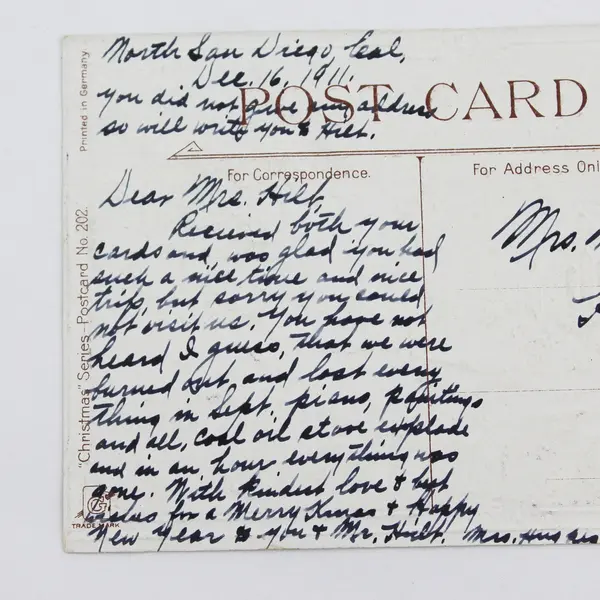 North San Diego, Cal,
Dec. 16, 1911.
you did not give any address
so will write you & Hilt.
POST CARD
For Correspondence.
For Address Onl
Printed in Germany
"Christmas" Series Postcard No. 202.
TRADE MARK
Dear Mrs. Hilt,
Recieved both your
cards and, was glad you had
such a nice time and nice
trip, but sorry you could
not visit us. You have not
heard I guess, that we were
burned out and lost every
thing in Sept. piano, paintings
and all, coal oil stove explode
and in an hour everything was
gone. With kindest love & best
wishes for a Merry Xmas & Happy
New Year to you & Mr. Hilt. Mrs. Hughes
Mrs.